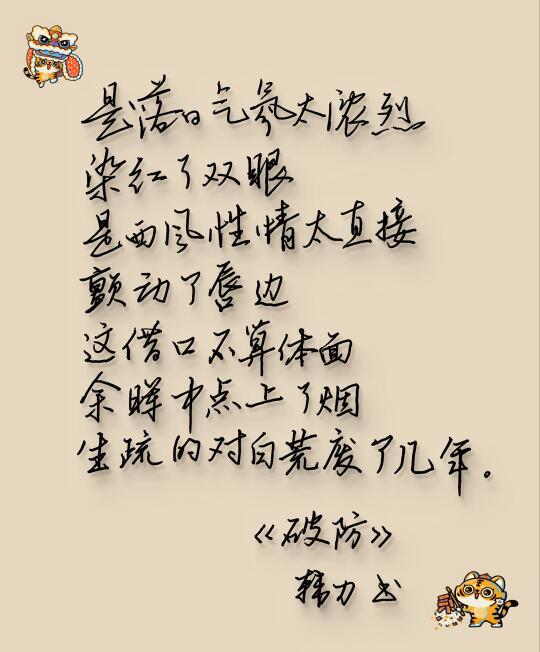 是落日气氛太浓烈
染红了双眼
是西风性情太直接
颤动了唇边
这借口不算体面
余晖中点上了烟
生疏的对白荒废了几年。
《破防》
韩力书